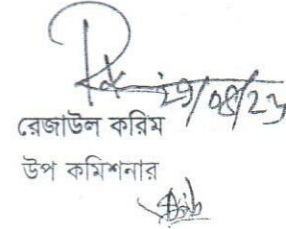 29/08/23
রেজাউল করিম
উপ কমিশনার